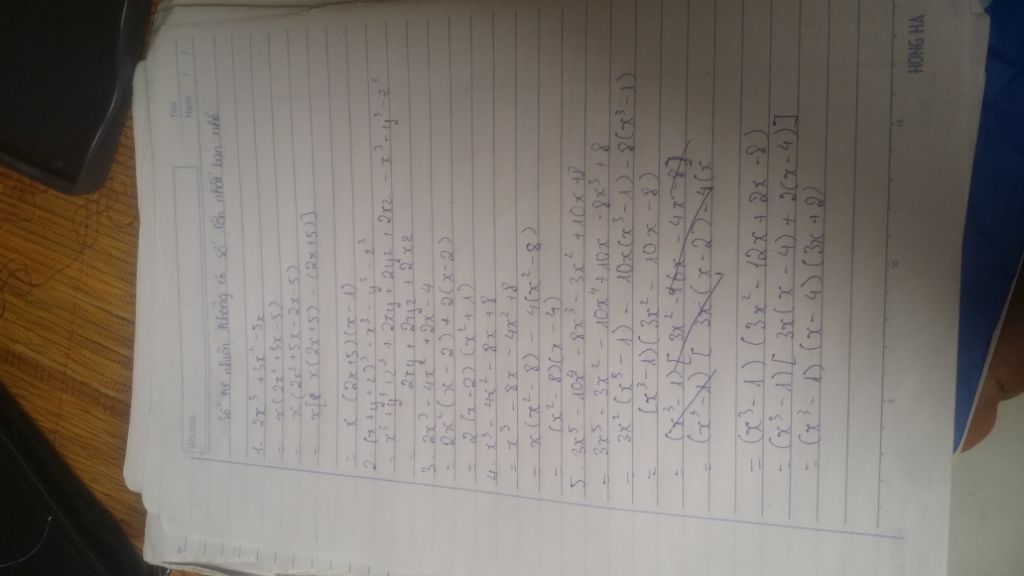 Thứ
Ngày
Số tự nhiên không có số lớn nhất bạn nhé
1. 2x³ + 3x² - 5x
= x(2x² + 3x - 5)
= x(2x² + 5x - 2x - 5)
= x[x(2x+5) - (2x+5)]
= x(2x+5)(x-1)
2. (x+y+z)³ - x³ - y³ - z³
= x³ + y³ + z³ + 2xy + 2yz + 2xz - x³ - y³ - z³
= 2xy + 2yz + 2xz
3. 2x³ - 4x² + 2x - 4
= 2x²(x-2) + 2(x-2)
= 2(x-2)(x²+1)
4. x³ - 4x² - 8x + 8
= x³ - 8x - 4x² + 8
= x(x² - 8) - 4(x² - 8)
= (x² - 8)(x - 4)
5. 3x⁵ - 10x⁴ - 8x³ - 3x² + 10x + 8
= 3x⁵ - 3x² - 10x⁴ + 10x - 8x³ + 8
= 3x²(x³ - 1) - 10x(x³ - 1) - 8(x³ - 1)
= (x³ - 1)(3x² - 10x - 8)
= (x³ - 1)(3x² - 12x + 2x - 8)
= (x³ - 1)[3x(x - 4) + 2(x - 4)]
= (x³ - 1)(x - 4)(3x + 2)
HONG HA